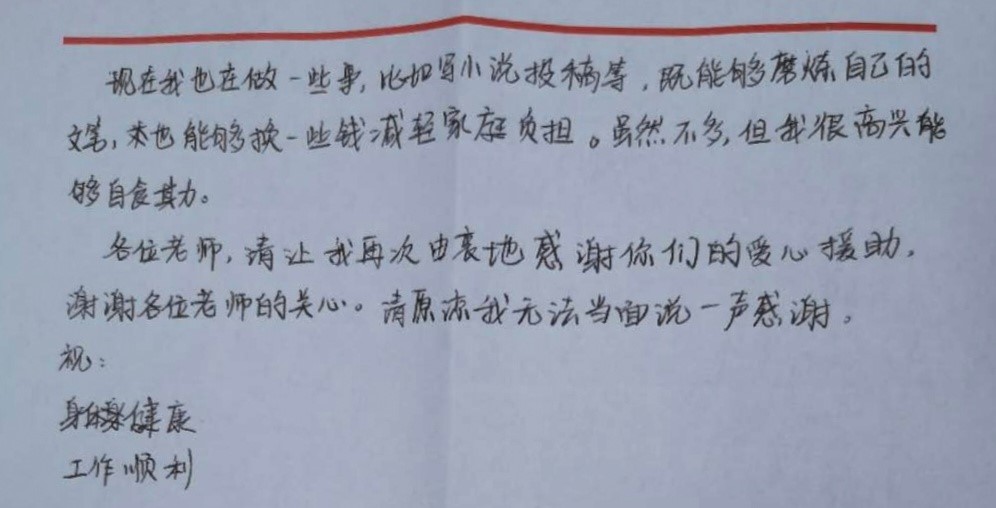 现在我也在做一些事，比如写小说投稿等，既能够磨炼自己的
文笔，来也能够换一些钱减轻家庭负担。虽然不多，但我很高兴能
够自食其力。
各位老师，请让我再次由衷地感谢你们的爱心援助，
谢谢各位老师的关心。请原谅我无法当面说一声感谢。
祝：
身体健康
工作顺利